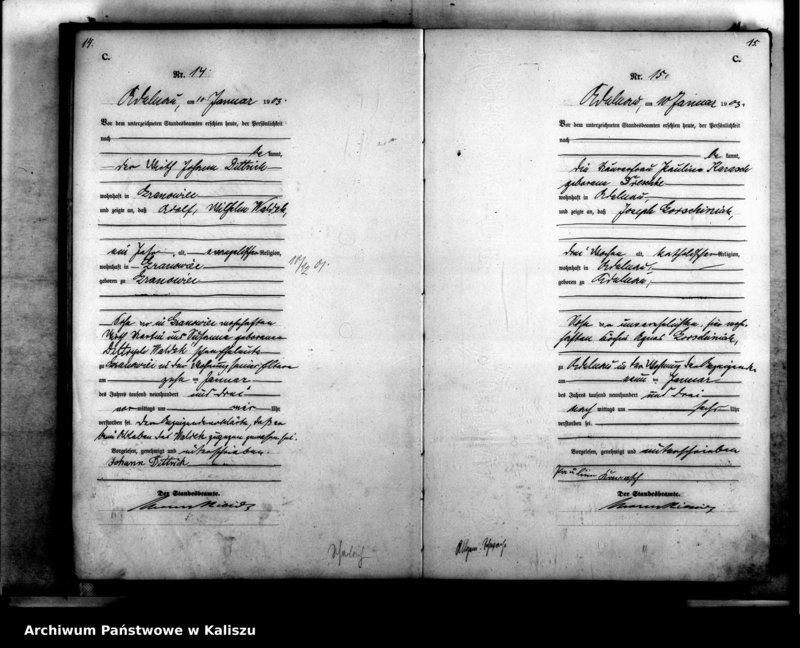 14.
C.
Nr. 14.
Adelnau, am 10 Januar 1903.
Vor dem unterzeichneten Standesbeamten erschien heute, der Persönlichkeit
nach
be kannt,
der Wirth Johann Dittrich
wohnhaft in Granowiec
und zeigte an, daß Adolf, Wilhelm Waldek,
ein Jahr alt, evangelischer Religion,
wohnhaft in Granowiec
geboren zu Granowiec
Sohn der in Granowiec wohnhaften
Wirth Martin und Susanna geborenen
Waldek
zu Granowiec in der Wohnung seiner Eltern
am zehn Januar
des Jahres tausend neunhundert und drei
vor mittags um vier Uhr
verstorben sei. Der Anzeigende erklärte, daß er
beim Ableben des Waldek zugegen gewesen sei.
Vorgelesen, genehmigt und unterschrieben.
Johann Dittrich
Der Standesbeamte.
15.
C.
Nr. 15.
Adelnau, am 10 Januar 1903.
Vor dem unterzeichneten Standesbeamten erschien heute, der Persönlichkeit
nach
be kannt,
die Pauline Karasch
geborene
wohnhaft in Adelnau,
und zeigte an, daß Joseph
drei Wochen alt, katholischer Religion,
wohnhaft in Adelnau,
geboren zu Adelnau,
Sohn der unverehelichten, hier wohn-
haften Köchin Agnes
zu Adelnau in der Wohnung der Anzeigenden
am neun Januar
des Jahres tausend neunhundert und drei
nach mittags um sechs Uhr
verstorben sei.
Vorgelesen, genehmigt und unterschrieben
Pauline Karasch
Der Standesbeamte.
Archiwum Państwowe w Kaliszu